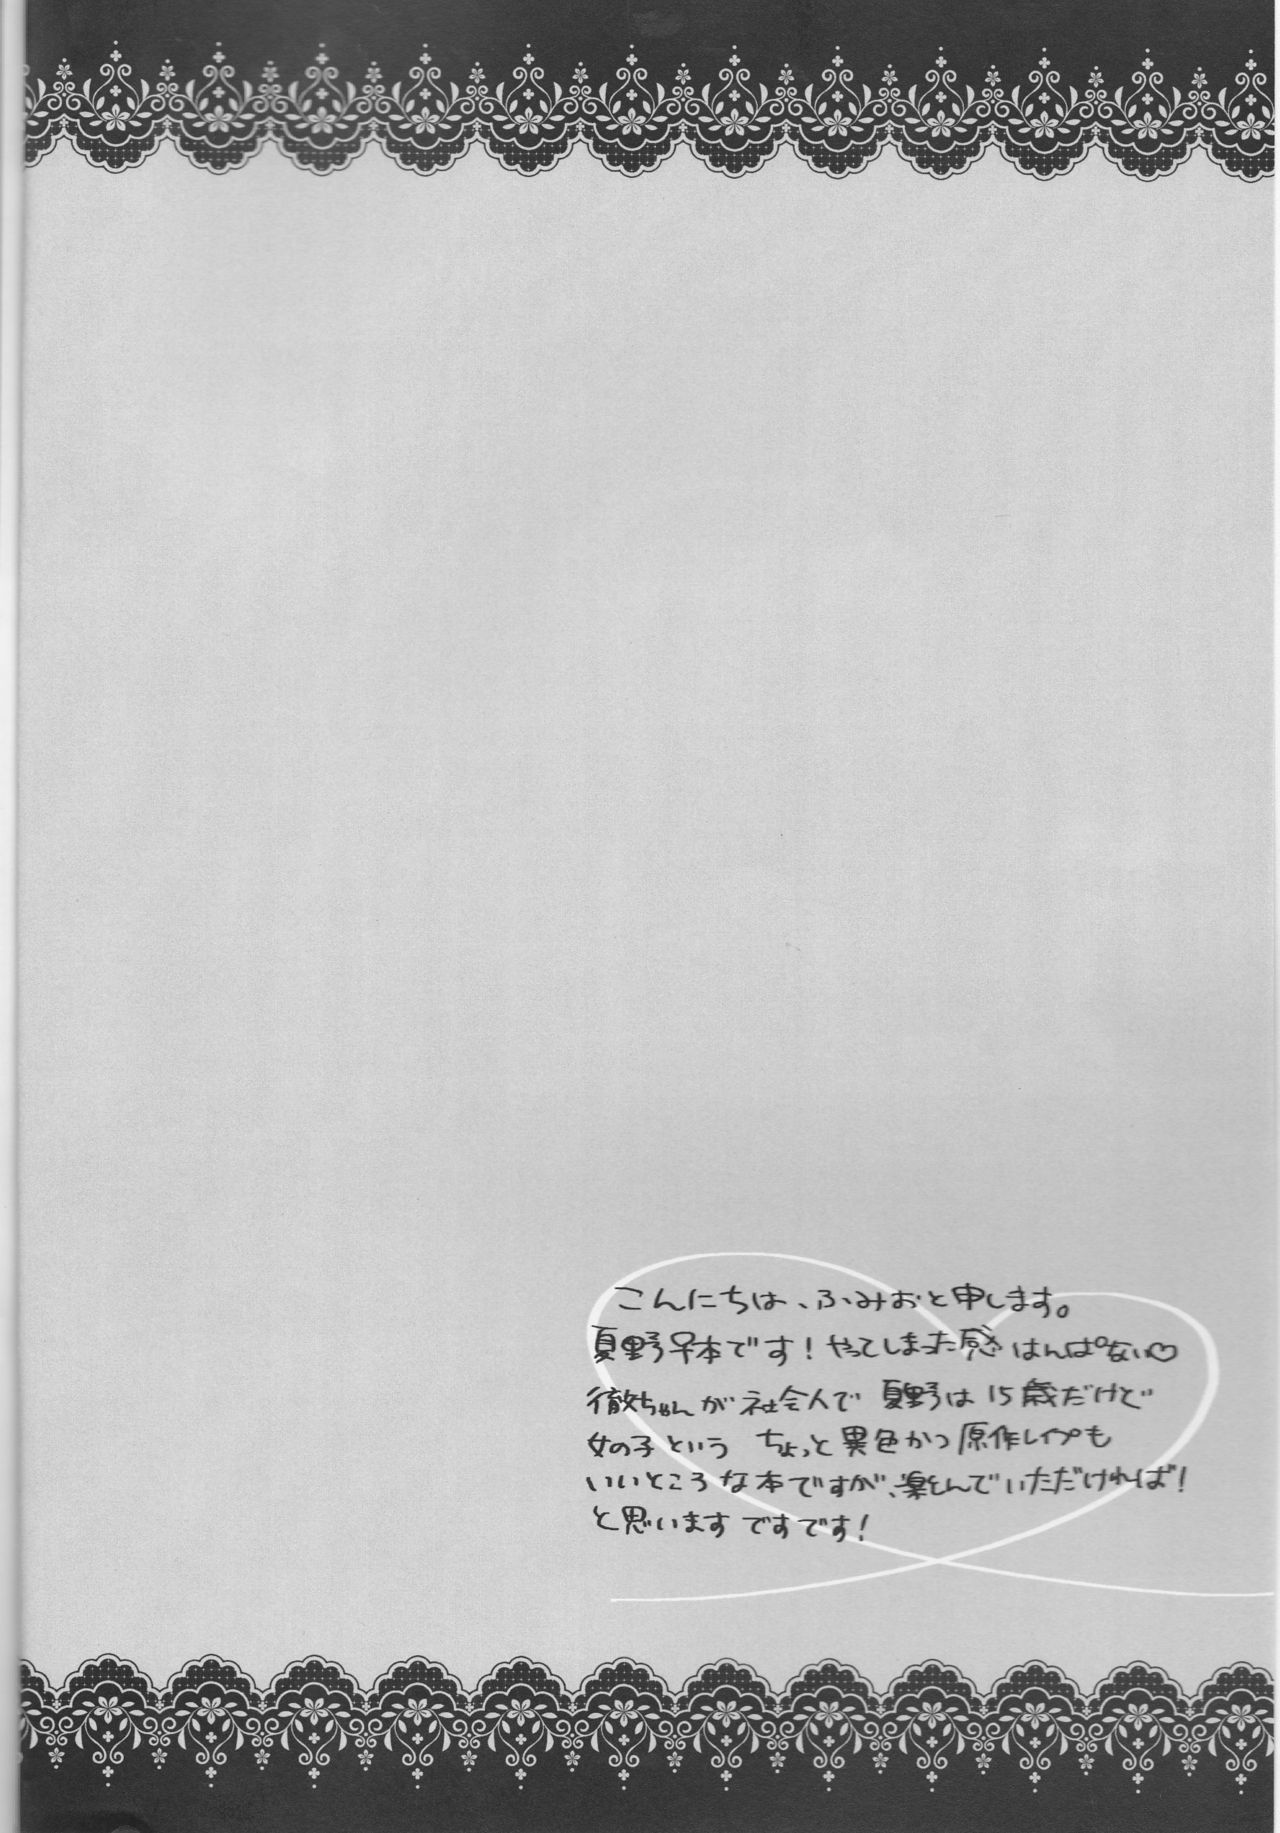 こんにちは、ふみおと申します。
夏野♀本です！やってしまった感はんぱない♡
徹ちゃんが社会人で 夏野は15歳だけど
女の子という ちょっと異色かつ原作レイプも
いいところな本ですが、楽しんでいただければ！
と思いますですです！